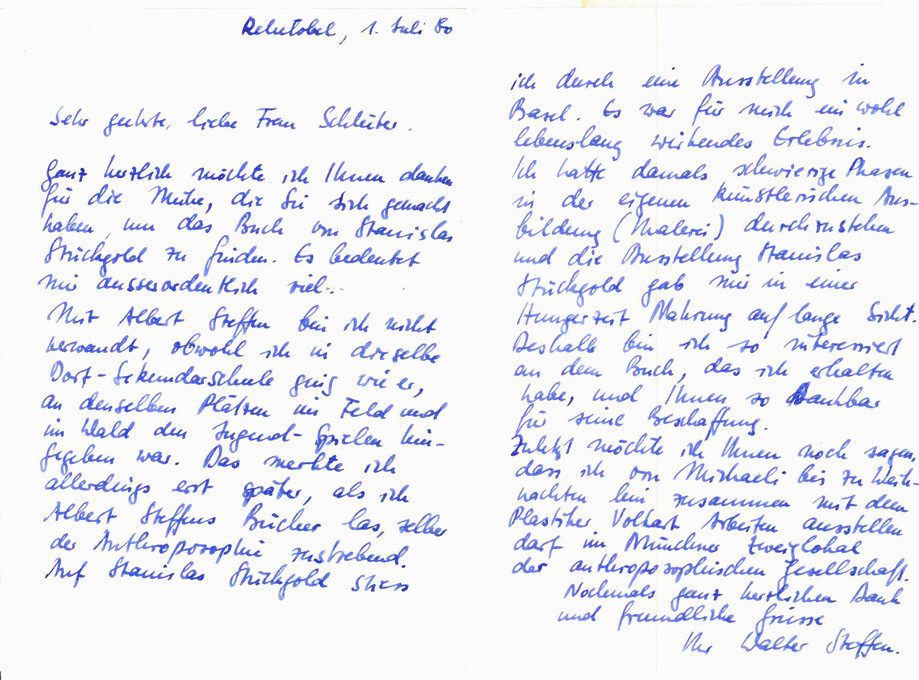 Rehetobel, 1. Juli 80
Sehr geehrte, liebe Frau Schlüter.
Ganz herzlich möchte ich Ihnen danken
für die Mühe, die Sie sich gemacht
haben, um das Buch von Stanislas
Stückgold zu finden. Es bedeutet
mir ausserordentlich viel.
Mit Albert Steffen bin ich nicht
verwandt, obwohl ich in dieselbe
Dorf-Sekundarschule ging wie er,
an denselben Plätzen im Feld und
im Wald den Jugend-Spielen hin-
gegeben war. Das merkte ich
allerdings erst später, als ich
Albert Steffens Bücher las, selber
der Anthroposophie zustrebend.
Auf Stanislas Stückgold stiess
ich durch eine Ausstellung in
Basel. Es war für mich ein wohl
lebenslang wirkendes Erlebnis.
Ich hatte damals schwierige Phasen
in der eigenen künstlerischen Aus-
bildung (Malerei) durchzustehen
und die Ausstellung Stanislas
Stückgold gab mir in einer
Hungerzeit Nahrung auf lange Sicht.
Deshalb bin ich so interessiert
an dem Buch, das ich erhalten
habe, und Ihnen so dankbar
für seine Beschaffung.
Zuletzt möchte ich Ihnen noch sagen,
dass ich von Michaeli bis zu Weih-
nachten hin zusammen mit dem
Plastiker Volkart Arbeiten ausstellen
darf im Münchner Zweiglokal
der anthroposophischen Gesellschaft.
Nochmals ganz herzlichen Dank
und freundliche Grüsse
Ihr Walter Steffen.